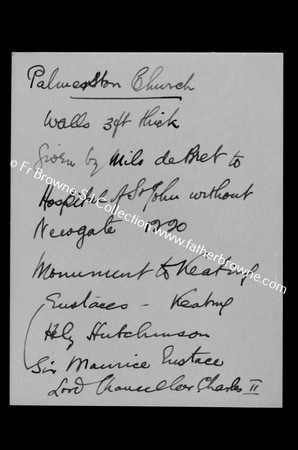 Palmerston Church
Walls 3ft thick
Given by Milo de Bret to
Hospital of St John without
Newgate 1220
Monument to Keating
Eustaces - Keating
Hely Hutchinson
Sir Maurice Eustace
Lord Chancellor Charles II
© Fr Browne S.J. Collection www.fatherbrowne.com